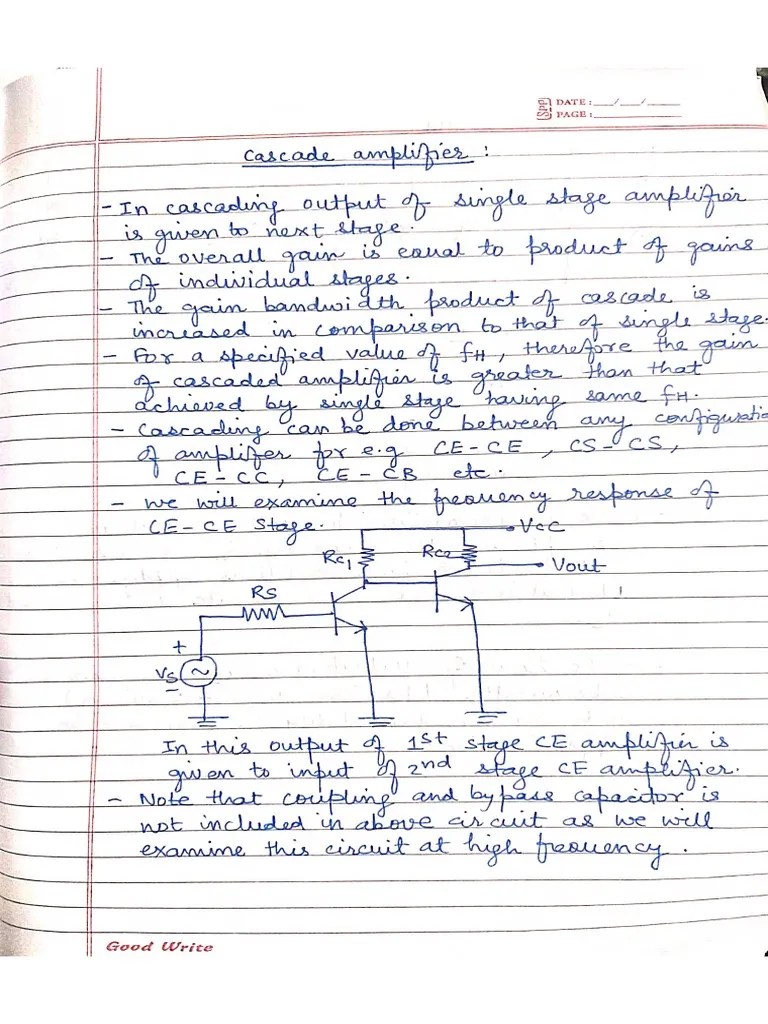 DATE: __/__/__
PAGE: ______
Cascade amplifier :
- In cascading output of single stage amplifier
is given to next stage.
- The overall gain is equal to product of gains
of individual stages.
- The gain bandwidth product of cascade is
increased in comparison to that of single stage.
- For a specified value of fH, therefore the gain
of cascaded amplifier is greater than that
achieved by single stage having same fH.
- Cascading can be done between any configuratio
of amplifer for e.g CE-CE, CS-CS,
CE-CC, CE-CB etc.
- we will examine the frequency response of
CE-CE stage.
VCC
RC1 RC2
Vout
RS
+
VS ~
-
In this output of 1st stage CE amplifier is
given to input of 2nd stage CE amplifier.
- Note that coupling and bypass capacitor is
not included in above circuit as we will
examine this circuit at high frequency.
Good Write